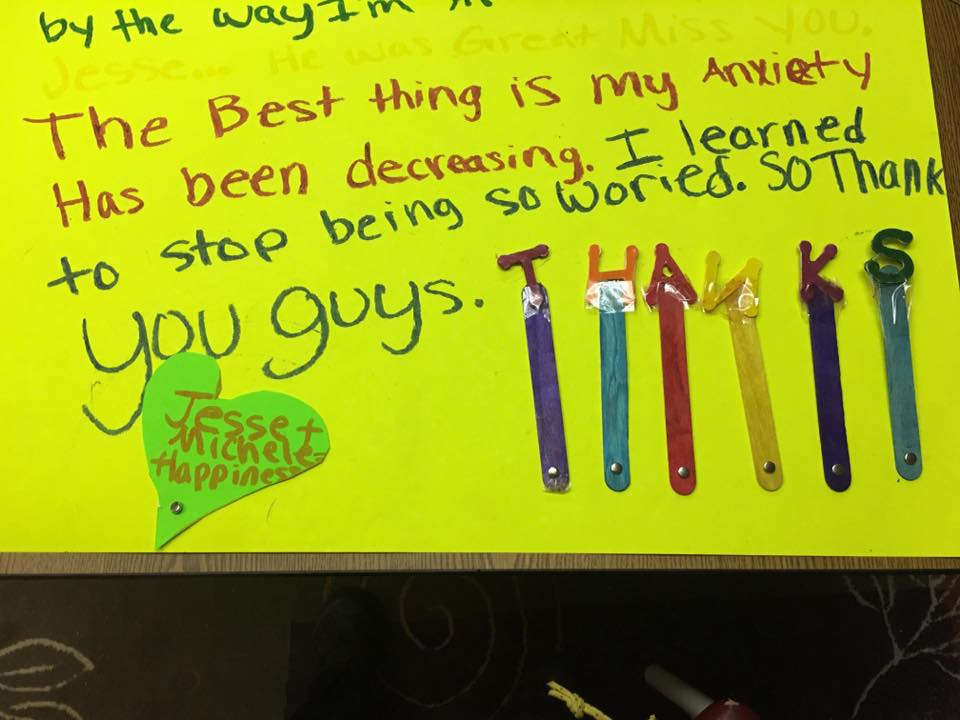 by the way I'm
Jesse... He was Great Miss You.
The Best thing is my Anxiety
Has been decreasing. I learned
to stop being so woried. So Thank
you guys.
THANKS
Jesse +
Michele=
Happiness